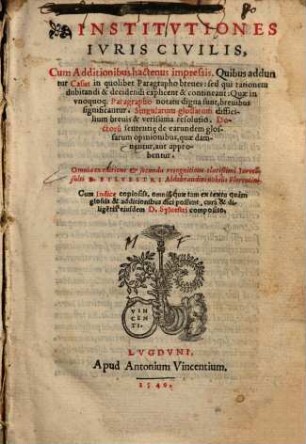 INSTITVTIONES
IVRIS CIVILIS,
Cum Additionibus hactenus impressis. Quibus addun
tur Casus in quolibet Paragrapho breues: sed qui rationem
dubitandi & decidendi explicent & contineant: Quæ in
vnoquoq; Paragrapho notatu digna sunt, breuibus
significantur. Singularum glossarum diffici-
lium breuis & verissima resolutio. Do-
ctorũ sententię de earundem glos-
sarum opinionibus, quæ dam-
nentur, aut appro-
bentur.
Omnia ex editione & secunda recognitione clarissimi Iurecõ-
sulti D. SYLVESTRI Aldobrandini
Cum Indice copioso, omnibus quæ tam ex textu quàm
glossis & additionibus dici possent, cura & di-
ligẽtia eiusdem D. Syluestri composito.
VIN
CEN
TI.
LVGDVNI,
Apud Antonium Vincentium.
1540.